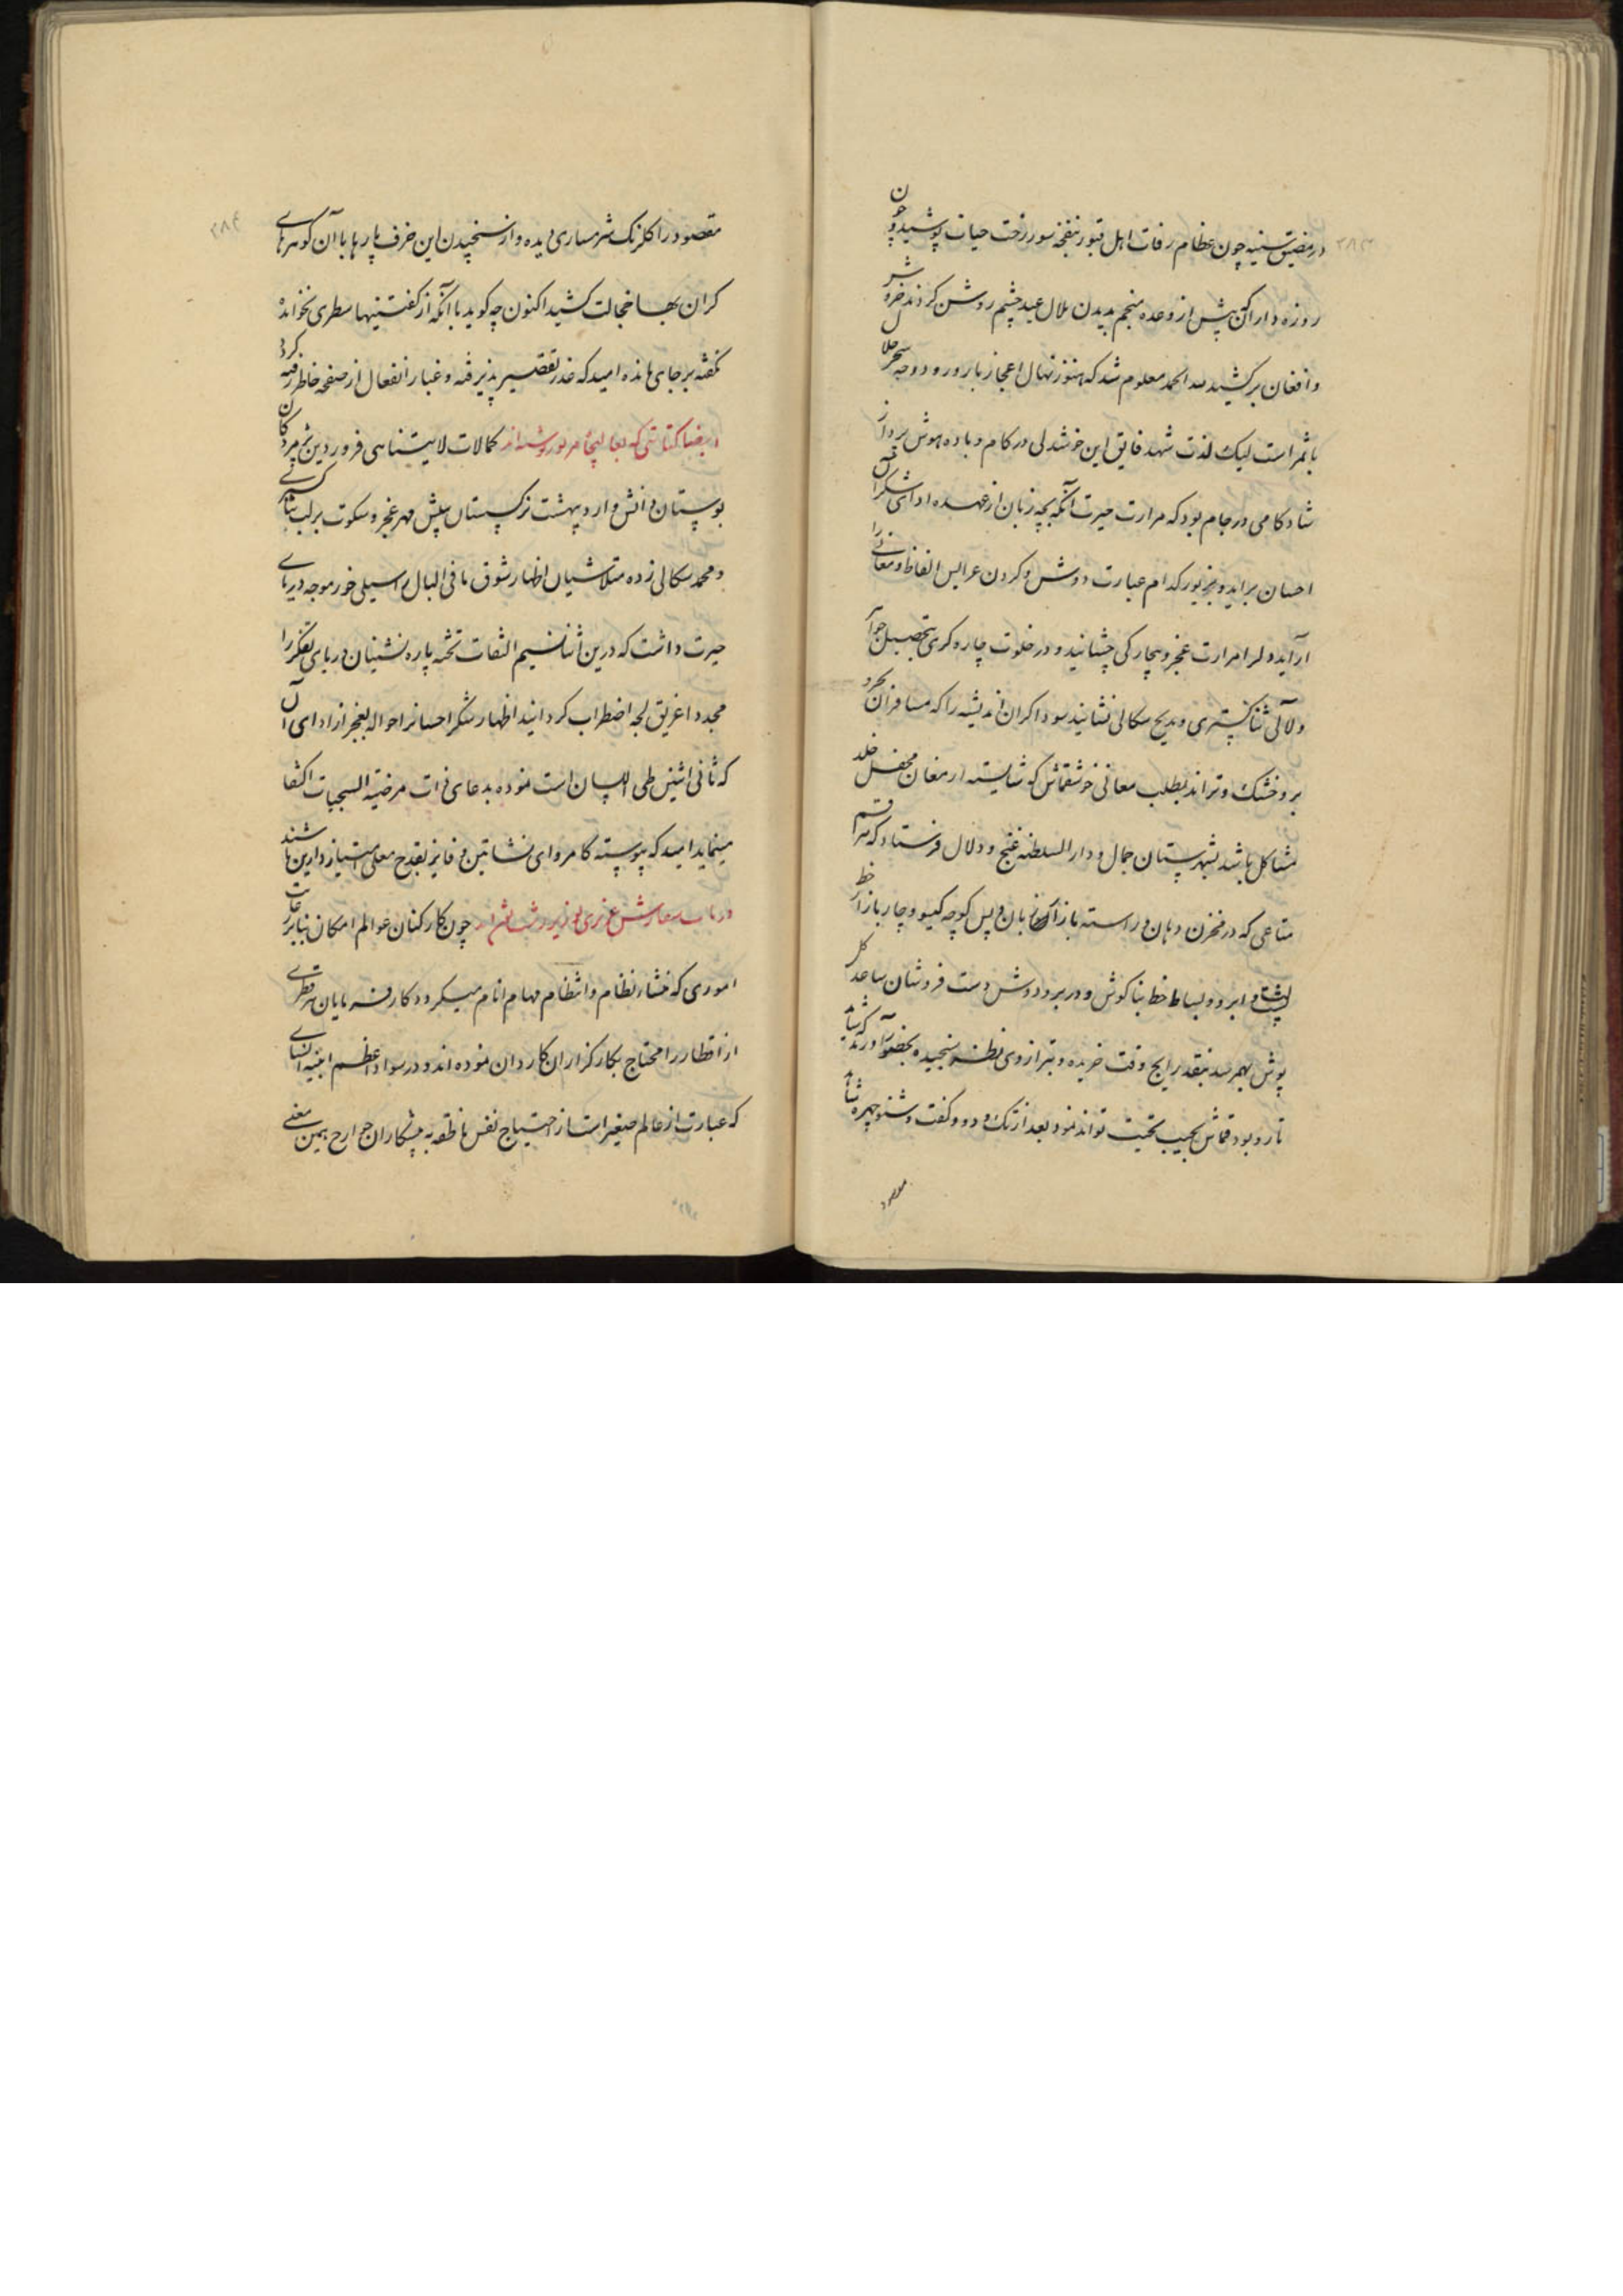 ۲۸۳
در مضیق سینه چون عظام رفات اهل قبور بنفخه سور رخت حیات پوشید و چون
روزه داران پیش از وعده منجم بدیدن هلال عید چشم روشن کردند خروش
و افغان برکشید لله الحمد معلوم شد که هنوز نهال اعجاز بارور و دوحه سحر حلال
با ثمر است لیک لذت شهد فایق این خوشدلی در کام و باده هوش پرداز
شادکامی در جام بود که مرارت حیرت آنکه بچه زبان از عهده ادای شکر این
احسان براید و بزیور کدام عبارت دوش و کردن عرایس الفاظ و معانی را
آراید دلرا مرارت عجز و بیچارکی چشانید و در خلوت چاره کری بتحصیل جواهر
و لآلی ثنا کستری و مدیح سکالی نشانید سوداکران اندیشه را که مسافران بحر و
بر و خشک و تراند بطلب معانی خوشقماش که شایسته ارمغان محفل خلد
مشاکل باشد بشهرستان جمال و دار السلطنه غنج و دلال فرستاد که هر قسم
متاعی که در مخزن دهان و راسته بازار زبان و پس کوچه کیسو و چار بازار خط
پشت و ابرو و بساط خط بناکوش و در بر و دوش دست فروشان ساعد کل
پوش بهمرسد بنقد رایج وقت خریده و بترازوی نظر سنجیده بحضور آورند که شاید
تار و پود قماش بجیب تحیت تواند نمود بعد از تک و دو و کفت و شنو چهره شاهد
مقصود
۲۸۴
مقصود را کلرنک شرمساری دیده و از سنجیدن این خزف پارها با آن کوهرهای
کران بها خجالت کشید اکنون چه کوید با آنکه از کفتنیها سطری نخوانده
نکفته بر جای مانده امید که عذر تقصیر پذیرفته و غبار انفعال از صفحه خاطر رفته کردد
ایضا کتابتی که بعالیجاه مزبور نوشته اند کمالات لایتناهی فروردین پژمردکان
بوستان دانش و اردیبهشت نرکستان بینش مهر عجز و سکوت بر لب ثنا کستری
و محمد سکالی زده متلاشیان اظهار شوق ما فی البال را سیلی خور موجه دریای
حیرت داشت که درین اثنا نسیم التفات تخته پاره نشینان دریای تفکر را
مجددا غریق لجه اضطراب کردانید اظهار شکر احسانرا حواله بعجز از ادای آن
که ثانی اثنین طی اللسان است نموده بدعای ذات مرضیة السجیات اکتفا
مینماید امید که پیوسته کامروای نشاتین و فایز بقدح معلی امتیاز دارین باشند
در باب سفارش عزیزی بوزیر رشت نوشته اند چون کارکنان عوالم امکان بنا بر رعایت
اموری که منشاء نظام و انتظام مهام انام میکردد کارفرمایان هر قطری
از اقطار را محتاج بکارکزاران کاردان نموده اند و در سواد اعظم ابنیه انسانی
که عبارت از عالم صغیر است از احتیاج نفس ناطقه به پیشکاران جوارح همین معنی